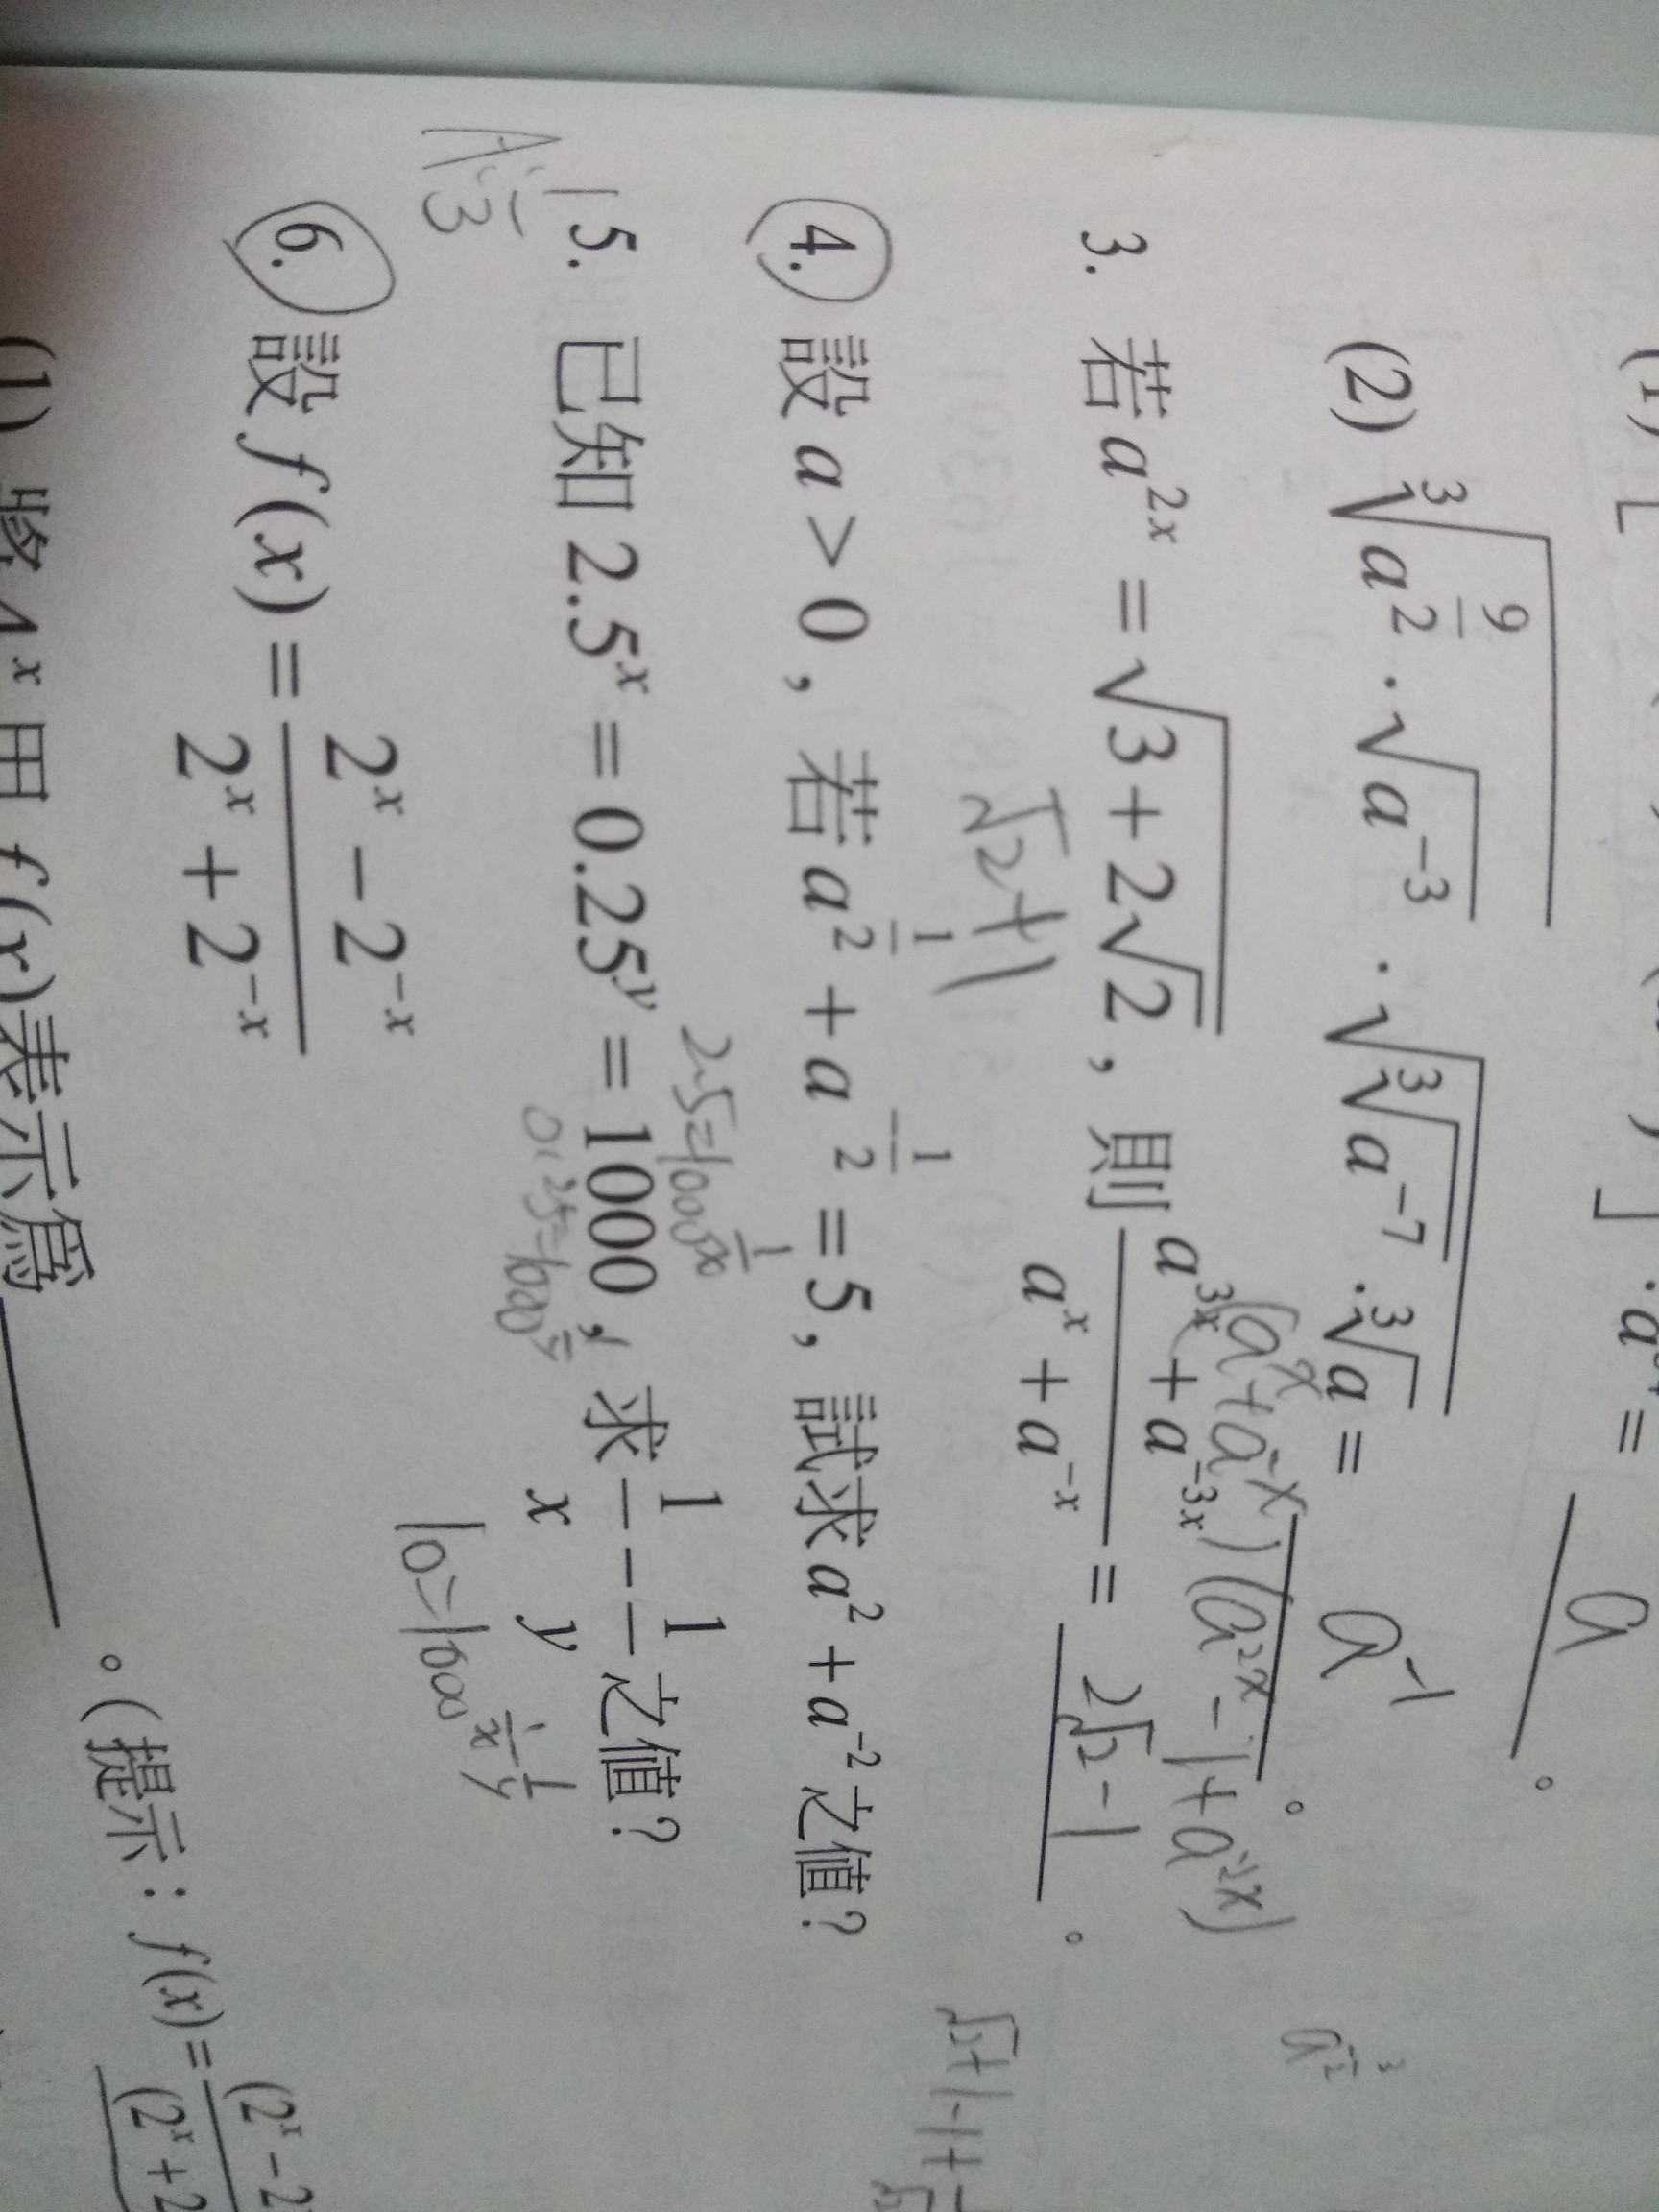 (2) ∛(a^(9/2)·√(a^-3))·√(∛(a^-7))·∛a = a^-1 。
3. 若 a^(2x) = √(3+2√2)，則 (a^(3x) + a^(-3x))/(a^x + a^(-x)) = 2√2-1 。
(a^x+a^-x)(a^2x-1+a^-2x)
√2+1
④ 設 a > 0，若 a^(1/2) + a^(-1/2) = 5，試求 a² + a^-2 之值？
5. 已知 2.5^x = 0.25^y = 1000，求 1/x - 1/y 之值？
2.5=1000^(1/x)
0.25=1000^(1/y)
10=1000^(1/x-1/y)
A: 1/3
⑥ 設 f(x) = (2^x - 2^-x)/(2^x + 2^-x)
(1) 將 4^x 用 f(x) 表示為 。(提示：f(x)=